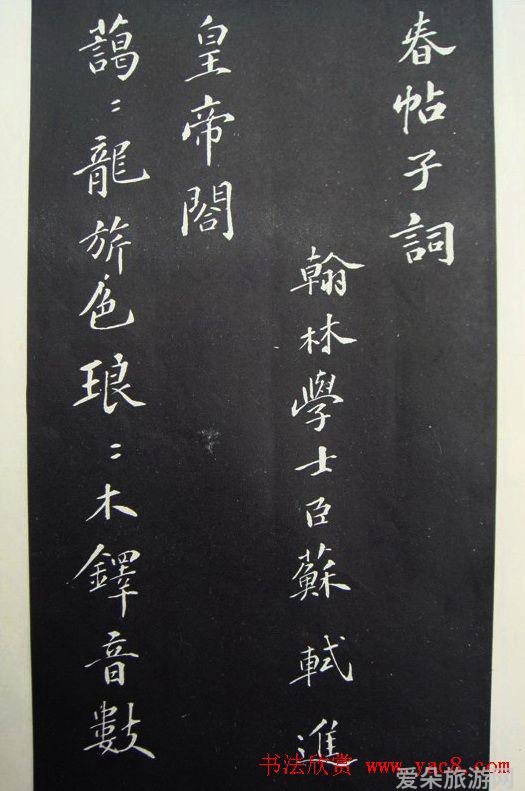 春帖子詞
翰林學士臣蘇軾進
皇帝閣
藹〻龍旂色琅〻木鐸音數
书法欣赏 www.yac8.com
爱朵旅游网